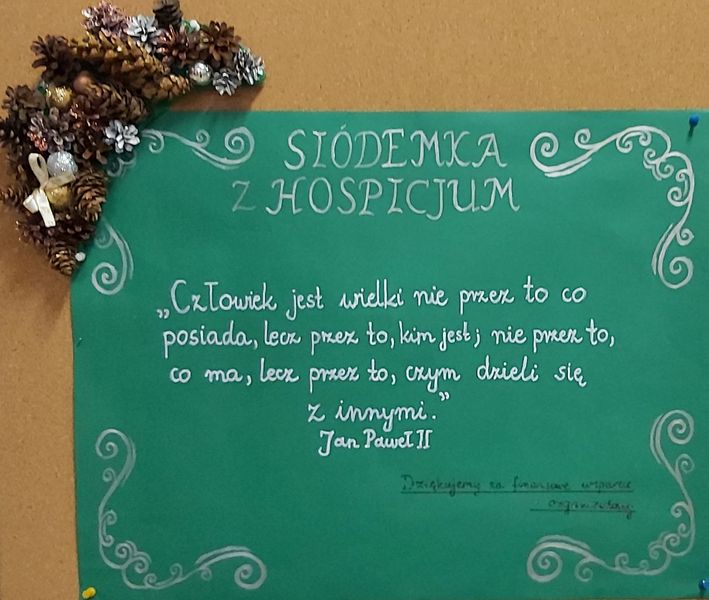 SIÓDEMKA
Z HOSPICJUM
„Człowiek jest wielki nie przez to co
posiada, lecz przez to, kim jest; nie przez to,
co ma, lecz przez to, czym dzieli się
z innymi.”
Jan Paweł II
Dziękujemy za finansowe wsparcie
i